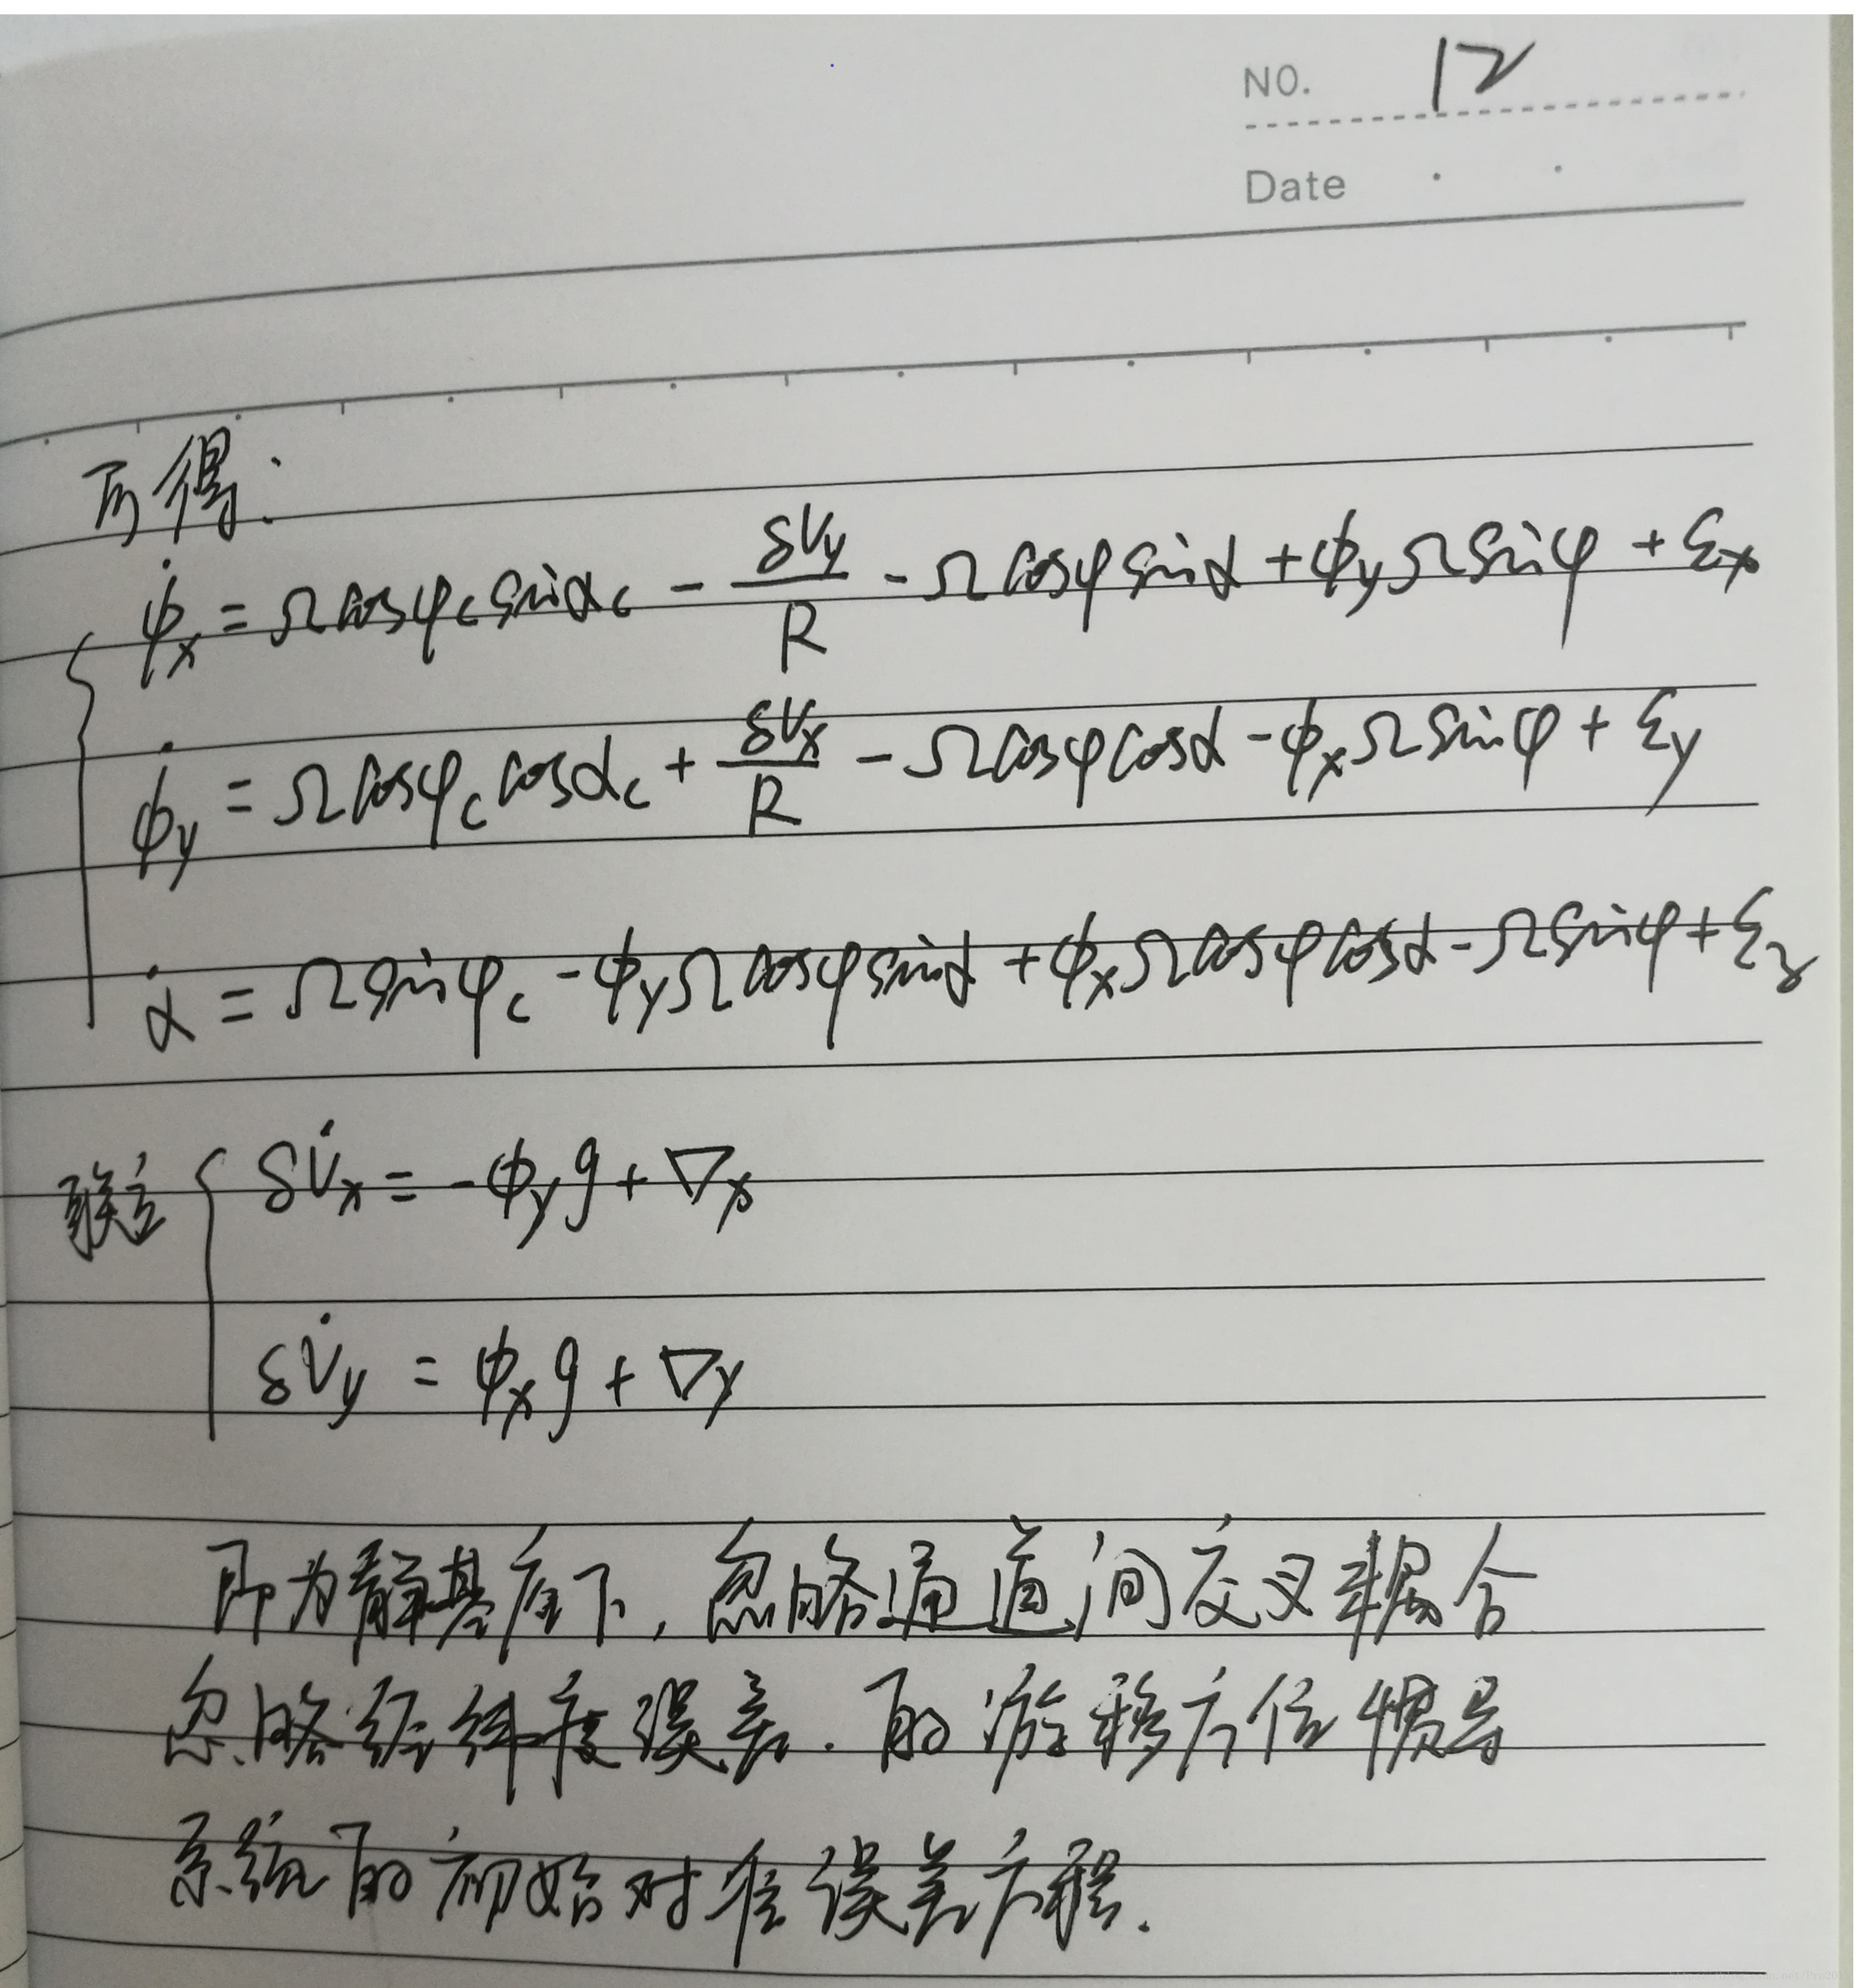 NO. 12
Date
可得:
φ̇x = Ωcosφc sinαc - δVy/R - Ωcosφ sinα + ϕyΩsinφ + εx
ϕ̇y = Ωcosφc cosαc + δVx/R - Ωcosφcosα - ϕxΩsinφ + εy
α̇ = Ωsinφc - ϕyΩcosφsinα + ϕxΩcosφcosα - Ωsinφ + εz
联立 { δV̇x = -ϕyg + ∇x
δV̇y = ϕxg + ∇y
即为静基座下,忽略通道间交叉耦合
忽略经纬度误差.的游移方位惯导
系统的初始对准误差方程.